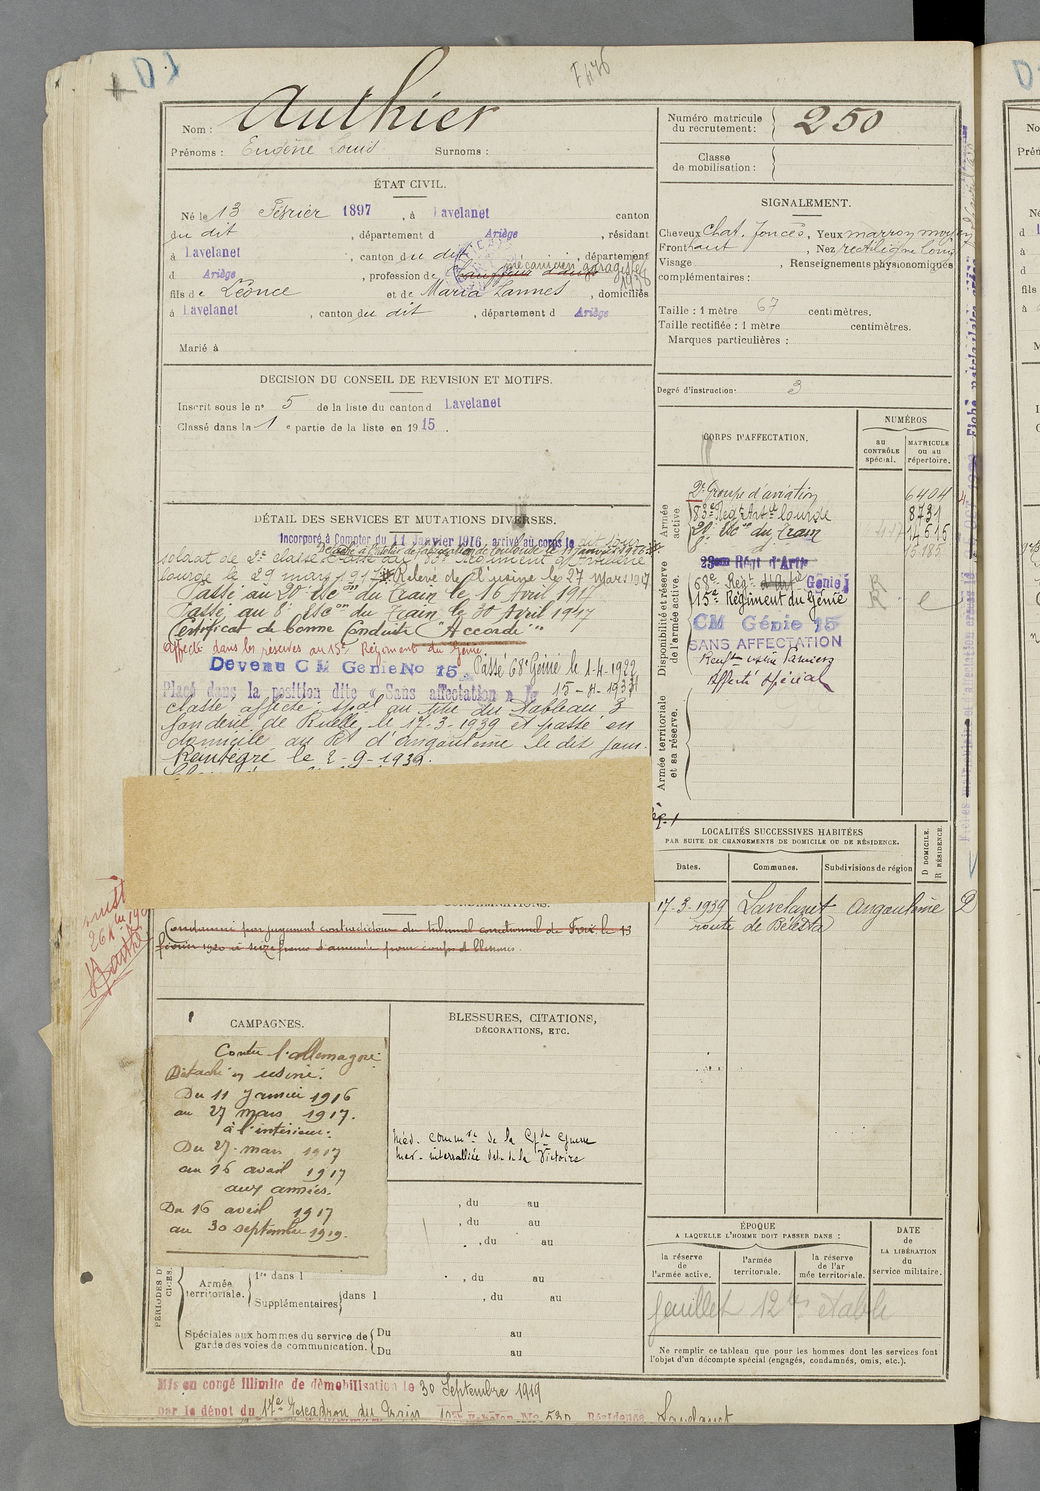 Authier
Nom :
Prénoms : Eugène Louis Surnoms :
Numéro matricule du recrutement : 250
Classe de mobilisation :
ÉTAT CIVIL.
Né le 13 Février 1897, à Lavelanet canton
du dit, département d Ariège, résidant
à Lavelanet, canton du dit, département
d Ariège, profession de mécanicien garagiste
1936
fils de Léonce et de Maria Lannes, domiciliés
à Lavelanet, canton du dit, département d Ariège
Marié à
SIGNALEMENT.
Cheveux Chat. foncés, Yeux marron moyen
Front haut, Nez rectiligne long
Visage, Renseignements physionomiques
complémentaires :
Taille : 1 mètre 67 centimètres.
Taille rectifiée : 1 mètre centimètres.
Marques particulières :
Degré d'instruction : 3
DECISION DU CONSEIL DE REVISION ET MOTIFS.
Inscrit sous le n° 5 de la liste du canton d Lavelanet
Classé dans la 1e partie de la liste en 1915.
DÉTAIL DES SERVICES ET MUTATIONS DIVERSES.
Incorporé à Compter du 11 Janvier 1916. arrivé au corps le dit jour
soldat de 2e classe
lourde le 29 mars 1917. Relevé de l'usine le 27 mars 1917
Passé au 20e Esc on du Train le 16 Avril 1917
Passé au 8e Esc on du Train le 30 Avril 1917
Certificat de bonne Conduite "Accordé"
Affecté dans les réserves au 15e Régiment du Génie
Devenu C M Genie No 15. Passé 68e Génie le 1-4-1922
Placé dans la position dite « Sans affectation » le 15-4-1933
Classé affecté spal au titre du Tableau 3
fonderie de Ruelle, le 17-3-1939 et passé en
domicile au Rt d'angoulême le dit jour.
Réintégré le 2-9-1939.
CORPS D'AFFECTATION.
NUMÉROS
au CONTRÔLE spécial.
MATRICULE ou au répertoire.
Armée active.
2e Groupe d'aviation 6404
83e Reg. Art ie lourde 8731
20e Esc on du Train 14515
15185
Disponibilité et réserve de l'armée active.
23eme Régt d'Artie
68e Regt d'Art ie Génie
15e Régiment du Génie
CM Génie 15
SANS AFFECTATION
Affecté Spécial
Armée territoriale et sa réserve.
LOCALITÉS SUCCESSIVES HABITÉES
PAR SUITE DE CHANGEMENTS DE DOMICILE OU DE RÉSIDENCE.
Dates. Communes. Subdivisions de région D DOMICILE. R RÉSIDENCE.
17-3-1939 Lavelanet angoulême D
route de Bélesta
CONDAMNATIONS.
Condamné par jugement contradictoire du tribunal correctionnel de Foix le 13
février 1920 à seize francs d'amende pour coups et blessures.
CAMPAGNES.
Contre l'allemagne
Détaché en usine.
Du 11 Janvier 1916
au 27 mars 1917.
à l'intérieur.
Du 27 mars 1917
au 16 avril 1917
aux armées.
Du 16 avril 1917
au 30 septembre 1919.
BLESSURES, CITATIONS,
DÉCORATIONS, ETC.
Méd. comm ve de la Gde Guerre
Med. interalliée dite de la Victoire
, du au
, du au
, du au
Armée territoriale.
1re dans l , du au
Supplémentaires dans l , du au
Spéciales aux hommes du service de garde des voies de communication.
Du au
Du au
ÉPOQUE
A LAQUELLE L'HOMME DOIT PASSER DANS :
la réserve de l'armée active.
l'armée territoriale.
la réserve de l'ar mée territoriale.
DATE de LA LIBÉRATION du service militaire.
feuillet 12 bis établi
Ne remplir ce tableau que pour les hommes dont les services font
l'objet d'un décompte spécial (engagés, condamnés, omis, etc.).
Mis en congé illimité de démobilisation le 30 Septembre 1919
par le dépot du 17e Escadron du Train 10e Echelon No 530 Résidence Lavelanet